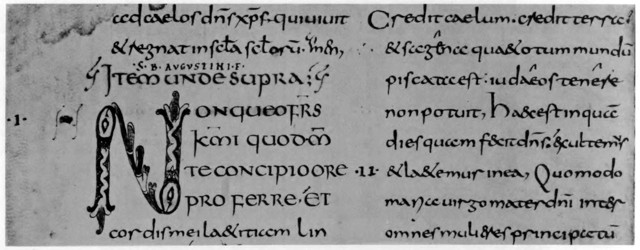 ad caelos dn̄s xp̄s. qui uiuit
& regnat in scl̄a scl̄orū. amen,
S. B. AVGVSTINI. F.
Item unde supra
·I· NON QUEO FR̄S
K̄MI QUOD M̄
TE CONCIPIO ORE
PROFERRE· ET
cordis mei la&itiam lin
Credit caelum. credit terra.
& qua &otum mundū
piscata est: iudaeos tenere
non potuit, haec est
dies quam fecit dn̄s: exultemus
·II· & la&emur in ea, Quomodo
maria uirgo mater dn̄i inter
omnes mulieres principatū